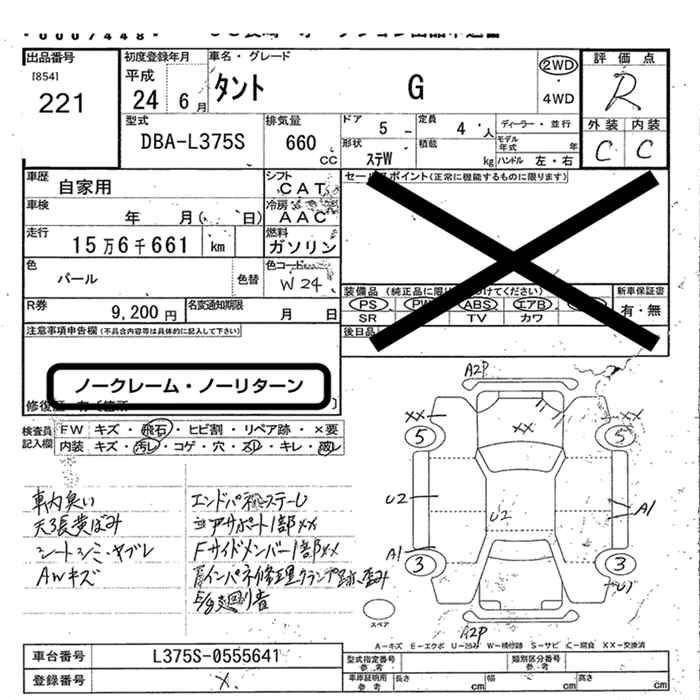 出品番号 初度登録年月 車名・グレード 評価点
[854] 平成 2WD
221 24 6月 タント G 4WD R
型式 排気量 ドア 5 - 定員 4 人 ディーラー・並行 外装 内装
DBA-L375S 660 CC 形状 ステW 積載 kg モデル年式 年 ハンドル 左・右 C C
車歴 自家用 シフト CAT セールスポイント(正常に機能するものに限ります)
車検 年 月( 日) 冷房 AAC
走行 15万6千661 km 燃料 ガソリン
色 パール 色替 色コード W24
装備品 (純正品に限り つけてください) 新車保証書
PS PW ABS エアB 有・無
SR TV カワ
R券 9,200円 名変通知期限 月 日
後日品
注意事項申告欄(不具合内容等は具体的に記入して下さい)
ノークレーム・ノーリターン
検査員記入欄 FW キズ・飛石・ヒビ割・リペア跡・×要
内装 キズ・汚レ・コゲ・穴・スレ・キレ・破レ
車内臭い
天張黄ばみ
シートシミ・ヤブレ
AWキズ
コアサポート1部XX
Fサイドメンバー1部XX
A2P
XX XX XX
5 5
U2 U2 A1
A1
3 3
スペア
A2P
A-キズ E-エクボ U-凹み W-補修跡 S-サビ C-腐食 XX-交換済
車台番号 L375S-0555641
登録番号 X
型式指定番号 参考 類別区分番号 参考
車庫証明用 参考 長さ cm 幅 cm 高さ cm